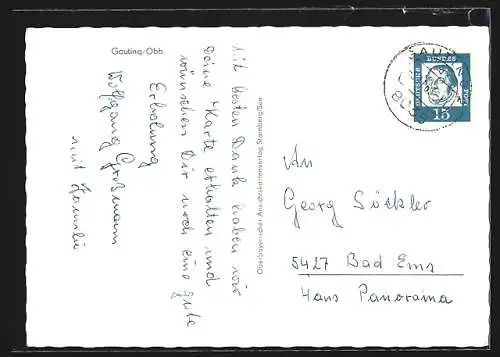 Gauting-Obb.
Mit besten Dank haben wir
Deine Karte erhalten und
wünschen Dir noch eine gute
Erholung
Wolfgang Großmann
mit Familie
Oberbayerischer Ansichtskartenverlag Starnberg/See
DEUTSCHE
BUNDES
POST
15
An
Georg Söckler
5427 Bad Ems
Haus Panorama